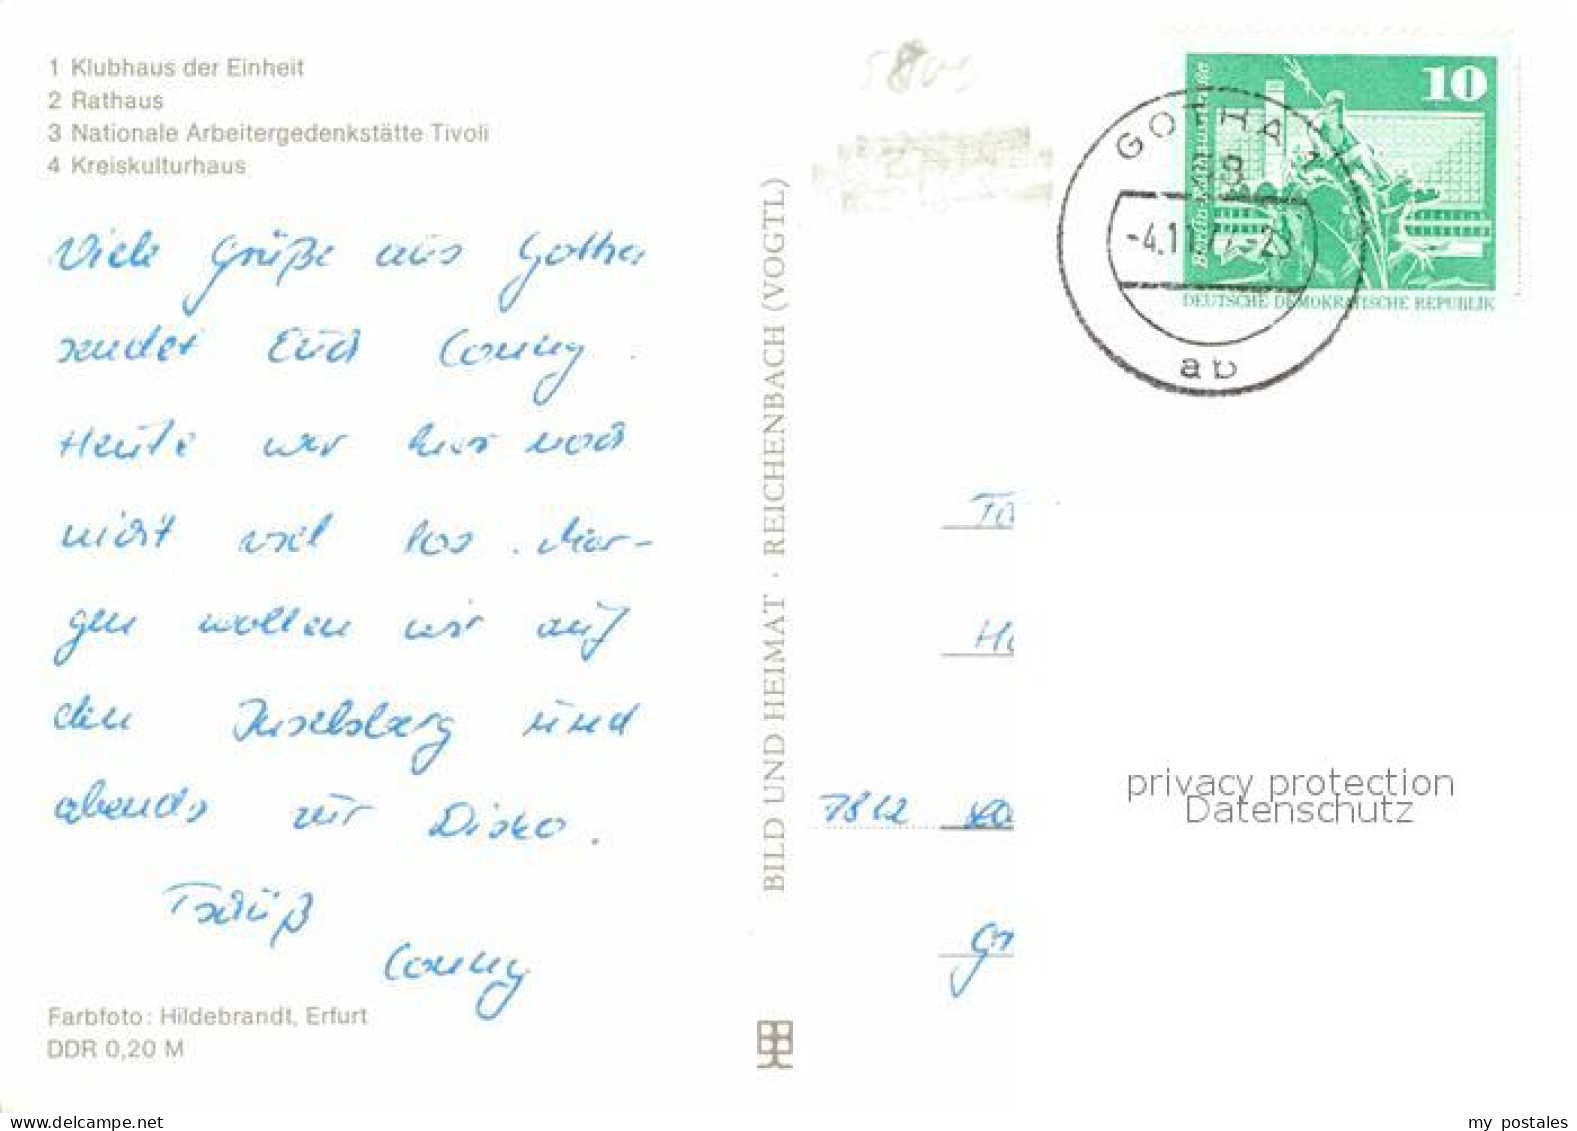 1 Klubhaus der Einheit
2 Rathaus
3 Nationale Arbeitergedenkstätte Tivoli
4 Kreiskulturhaus
Viele Grüße aus Gotha
sendet Euch Conny.
Heute war hier noch
nicht viel los. Mor-
gen wollen wir auf
den Inselsberg und
abends zur Disko.
Tschüß
Conny
Farbfoto: Hildebrandt, Erfurt
DDR 0,20 M
BILD UND HEIMAT · REICHENBACH (VOGTL)
GOTHA 1
-4.11.77-2
ab
10
DEUTSCHE DEMOKRATISCHE REPUBLIK
7812
privacy protection
Datenschutz
my postales